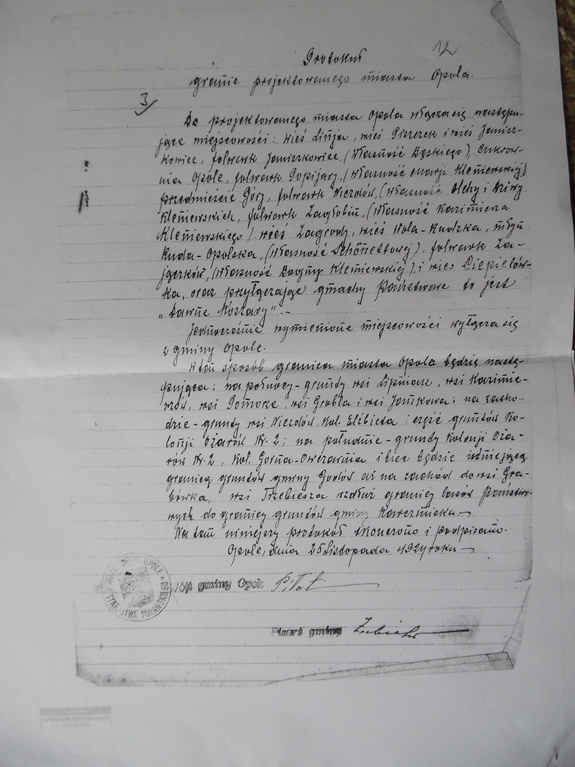 12
Protokuł
granic projektowanego miasta Opola.
3/
Do projektowanego miasta Opola włącza się następu-
jące miejscowości: wieś Linja, wieś i wieś Janisz-
kowice, folwark Janiszkowice, (własność Dąskiego), Cukrow-
nia Opole, folwark (własność Kleniewskiej)
przedmieście Góry, folwark Niezdów, (własność i
Kleniewskich, folwark Zagłobin, (własność Kazimierza
Kleniewskiego) wieś Zagrody, wieś Wola-Rudzka, młyn
Ruda-Opolska, (własność folwark Za-
jączków, (własność Kleniewskiej), i wieś
ka, oraz przyłączając gmachy Państwowe to jest
"dawne Koszary".
Jednocześnie wymienione miejscowości wyłącza się
z gminy Opole.
W ten sposób granica miasta Opola będzie nastę-
pująca: na północy - grundy wsi wsi Kazimie-
rzów, wsi wsi Grabla i wsi Jankowa: na zacho-
dzie - grundy wsi Niezdów, Kol. Elżbieta i część gruntów Ko-
lonji Ożarów № 2; na południe - grundy Kolonji Oża-
rów № 2, Kol. Górna-Owczarnia i biec będzie istniejącą
granicą gruntów gminy Godów aż na zachód do wsi Gra-
bówka, wsi Trzebiesza wzdłuż granicy lasów Państwo-
wych do granicy gruntów gminy Karczmiska.
Na tem niniejszy protokół skończono i podpisano.
Opole, dnia 25 listopada 1924 roku
Wójt gminy Opole
Pisarz gminy